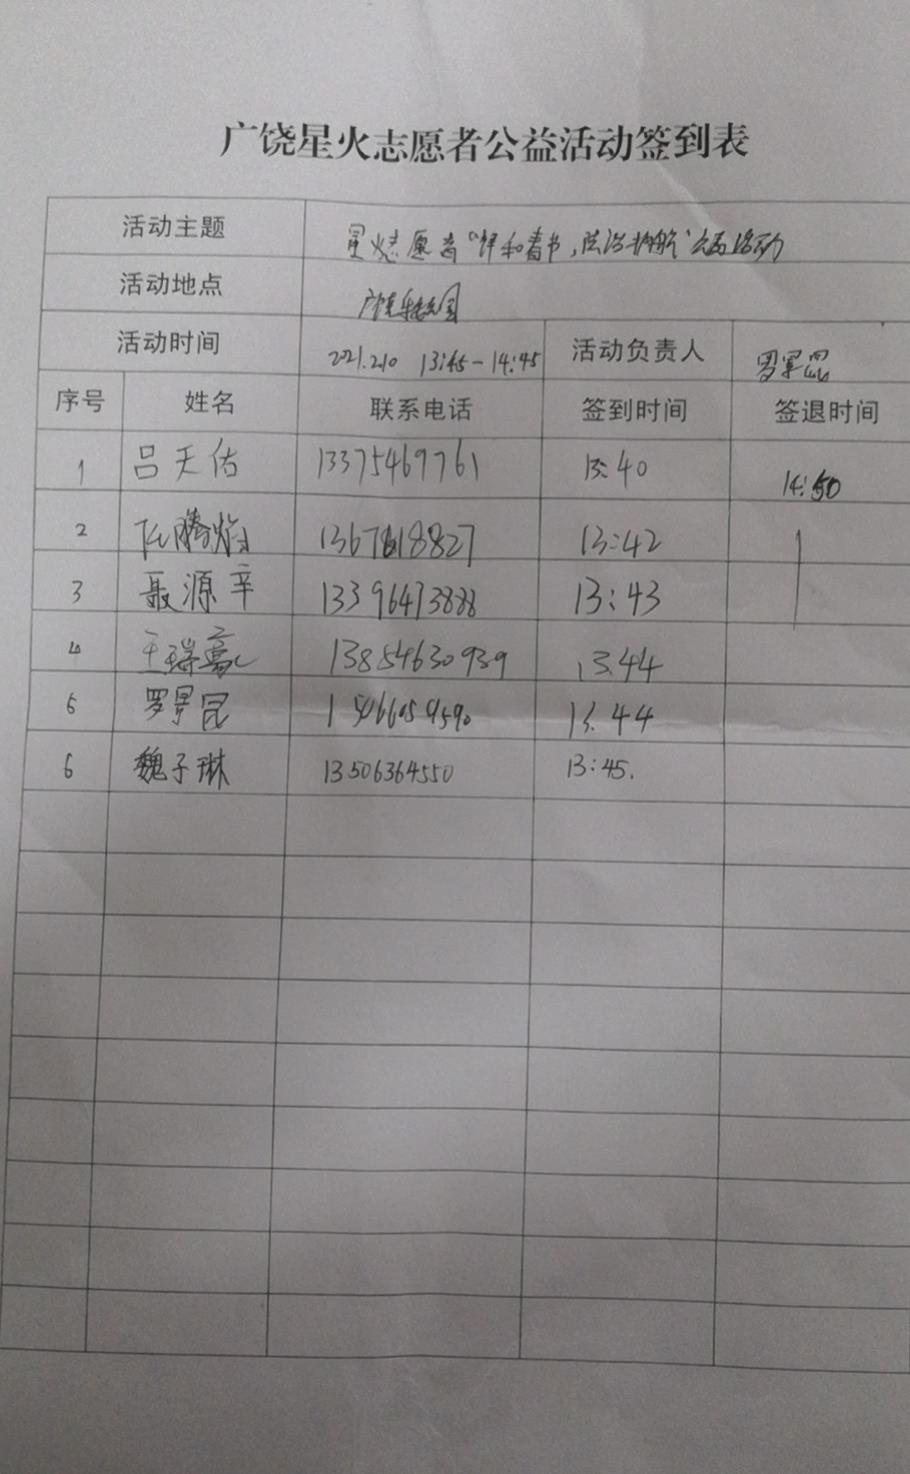 广饶星火志愿者公益活动签到表
活动主题 星火志愿者“祥和春节,法治护航”公益活动
活动地点 广饶乐安公园
活动时间 2021.2.10 13:45-14:45 活动负责人 罗景昆
序号 姓名 联系电话 签到时间 签退时间
1 吕天佑 13375469761 13:40 14:50
2 13:42
3 聂源辛 13396473888 13:43
4 王瑞赢 13854630939 13.44
5 罗景昆 13.44
6 魏子琳 13506364550 13:45.